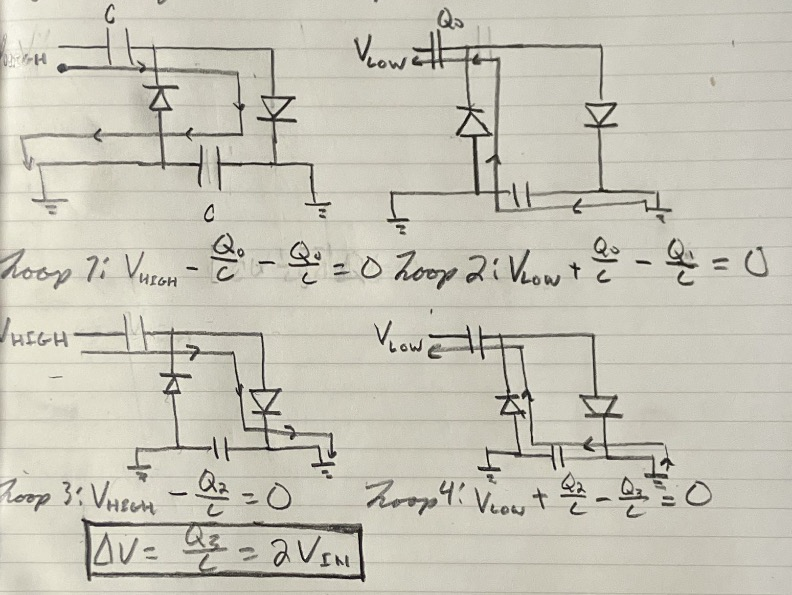 C
Q₀
V_LOW
C
Loop 1: V_HIGH - Q₀/C - Q₀/C = 0 Loop 2: V_LOW + Q₀/C - Q₁/C = 0
V_HIGH
V_LOW
Loop 3: V_HIGH - Q₂/C = 0 Loop 4: V_LOW + Q₂/C - Q₃/C = 0
ΔV = Q₃/C = 2 V_IN